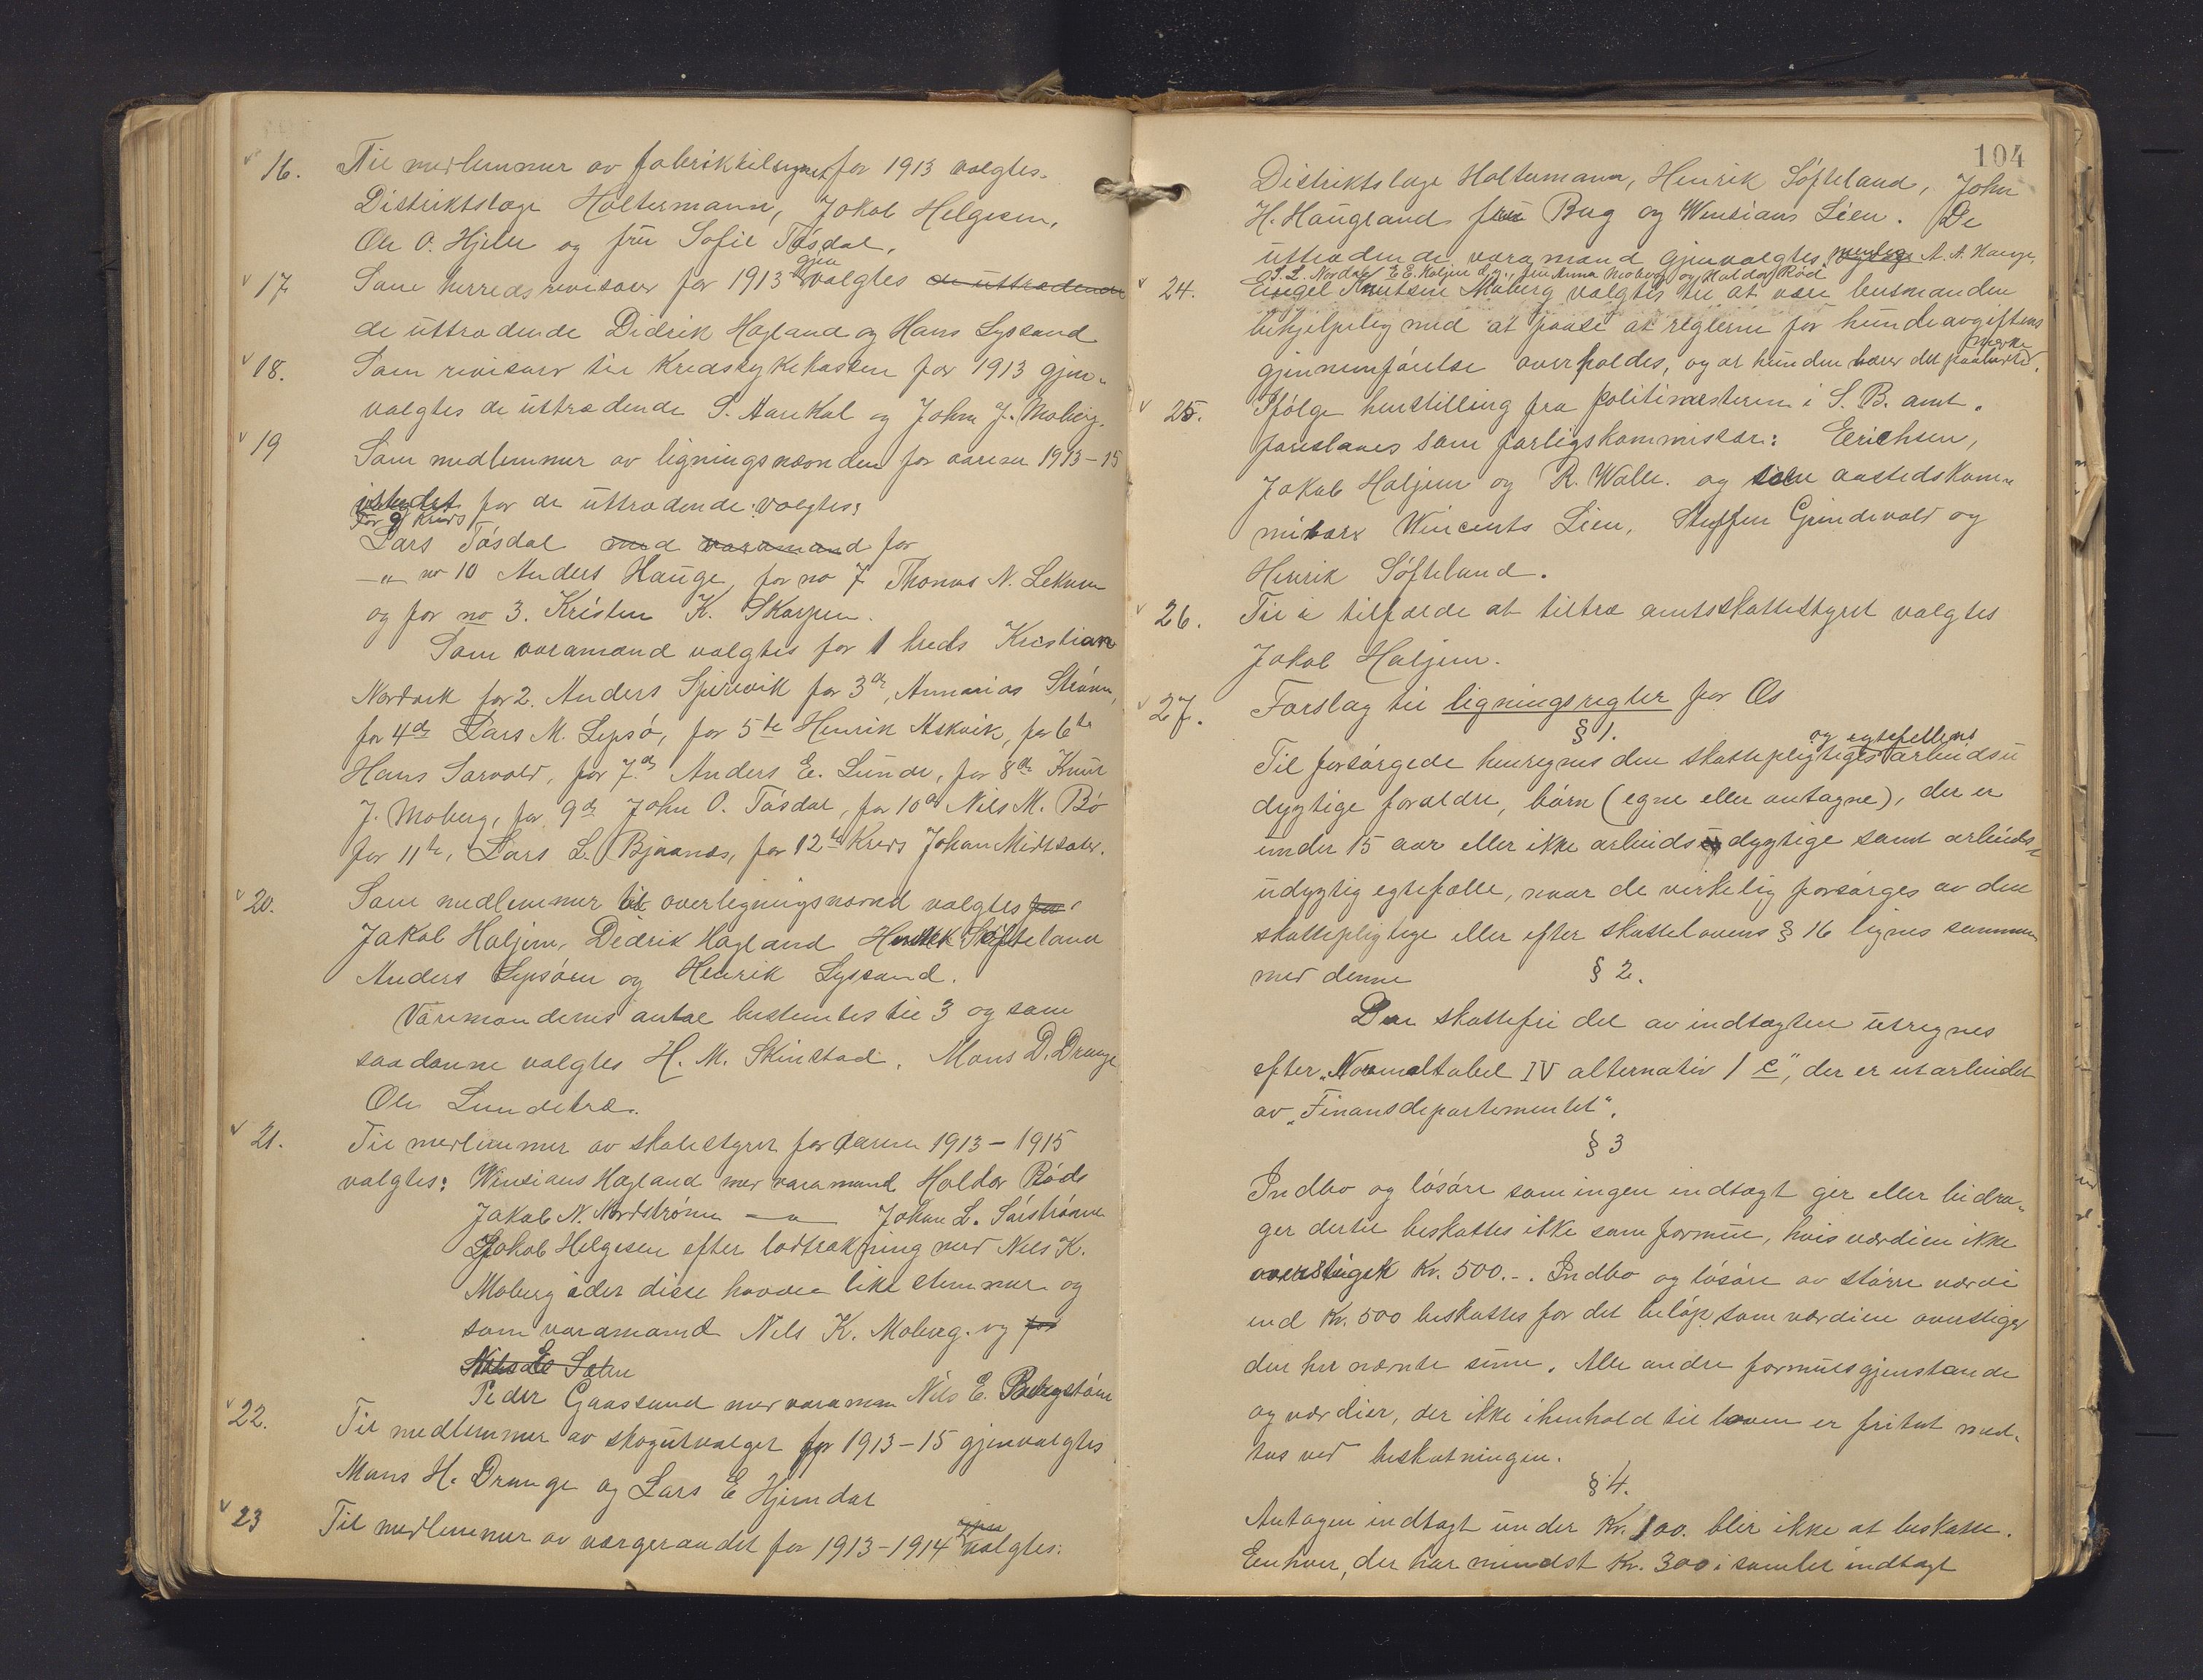 16. Til medlemmer av fabriktilsynet for 1913 valgtes.
Distriktslæge Holtermann, Jakob Helgesen,
Ole O. Hjelle og fru Sofie Tøsdal.
17. Som herredsrevisorer for 1913 gjen valgtes de uttrædende
de uttrædende Didrik Hagland og Hans Lyssand
18. Som revisorer til kredssykekassen for 1913 gjen-
valgtes de uttrædende S. Aarekol og Johan J. Moberg.
19 Som medlemmer av ligningsnævnden for aarene 1913-15
istedet for de uttrædende valgtes:
For 9 Kreds
Lars Tøsdal med varamand for
-"- no 10 Anders Hauge, for no 7 Thomas N. Lekven
og for no 3. Kristen K. Skorpen.
Som varamænd valgtes for 1 kreds Kristian
Nordvik for 2. Anders Spirevik for 3die, Annanias Strøm,
for 4de Lars M. Lepsø, for 5te Henrik Askvik, for 6te
Hans Sarvold, for 7de Anders E. Lunde, for 8de Knut
J. Moberg, for 9de John O. Tøsdal, for 10de Nils M. Bø
for 11te, Lars L. Bjånæs, for 12te Kreds Johan Midtsæter.
20. Som medlemmer til overligningsnævnd valgtes for
Jakob Haljem, Didrik Hagland Henrik Søfteland
Anders Lepsøen og Henrik Lyssand.
Varemændenes antal bestemtes til 3 og som
saadanne valgtes H. M. Skinstad, Mons D. Drange
Ole Lundetræ.
21. Til medlemmer av skolestyret for aarene 1913-1915
valgtes: Vinsians Hagland med varamand Haldor Røde
Jakob N. Nordstrøm -"- Johan L. Sørstrøm
Jakob Helgesen efter lodtrækning med Nils K.
Moberg idet disse havde like stemmer og
som varamand Nils K. Moberg. og for
Sælen
Peder Gaassand med varamann Nils E. Bergstøen
22. Til medlemmer av skogutvalget for 1913-15 gjenvalgtes
Mons H. Drange og Lars E Hjemdal
23 Til medlemmer av værgeraadet for 1913-1914 gjen valgtes:
104
Distriktslæge Holtermann, Henrik Søfteland, John
H. Haugland fru Bug og Vinsians Lien. De
uttrædende varamænd gjenvalgtes, nemlig A. A. Hauge,
S. L. Nordal, E E. Haljem d.y., fru Anna Moberg og Haldor Rød
24. Engel Knutsen Moberg valgtes til at være lensmanden
behjelpelig med at paase at reglerne for hundeavgiftens
gjennemførelse overholdes, og at hunden bærer det paabudte merke.
25. Ifølge henstilling fra politimesteren i S. B. amt.
foreslaaes som forligskommissær: Erichsen,
Jakob Haljem og R. Walle. og som aastedskom-
misær Wincents Lien, Steffen Grindevold og
Henrik Søfteland.
26. Til i tilfælde at tiltræ amtsskattestyret valgtes
Jakob Haljem.
27. Forslag til ligningsregler for Os
§ 1.
Til forsørgede henregnes den skattepligtiges og egtefellens arbeidsu
dygtige forældre, børn (egne eller antagne), der er
under 15 aar eller ikke arbeidsdygtige samt arbeids-
udygtig egtefælle, naar de virkelig forsørges av den
skattepligtige eller efter skattelovens § 16 lignes sammen
med denne
§ 2.
Den skattefri del av indtægten utregnes
efter „Normaltabel IV alternativ 1 c", der er utarbeidet
av „Finansdepartementet".
§ 3
Indbo og løsøre som ingen indtægt gir eller bidra-
ger dertil beskattes ikke som formue, hvis værdien ikke
overstiger Kr. 500.-. Indbo og løsøre av større værdi
end Kr. 500 beskattes for det beløp som værdien overstiger
den her nævnte sum. Alle andre formuesgjenstande
og værdier, der ikke i henhold til loven er fritat med-
tas ved beskatningen.
§ 4.
Antagen indtægt under Kr. 100. blir ikke at beskatte.
Enhver, der har mindst Kr. 300 i samlet indtægt